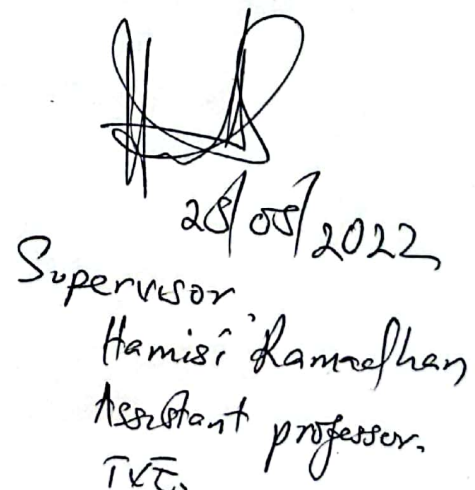 28/08/2022
Supervisor
Hamisi Ramadhan
Assistant professor.